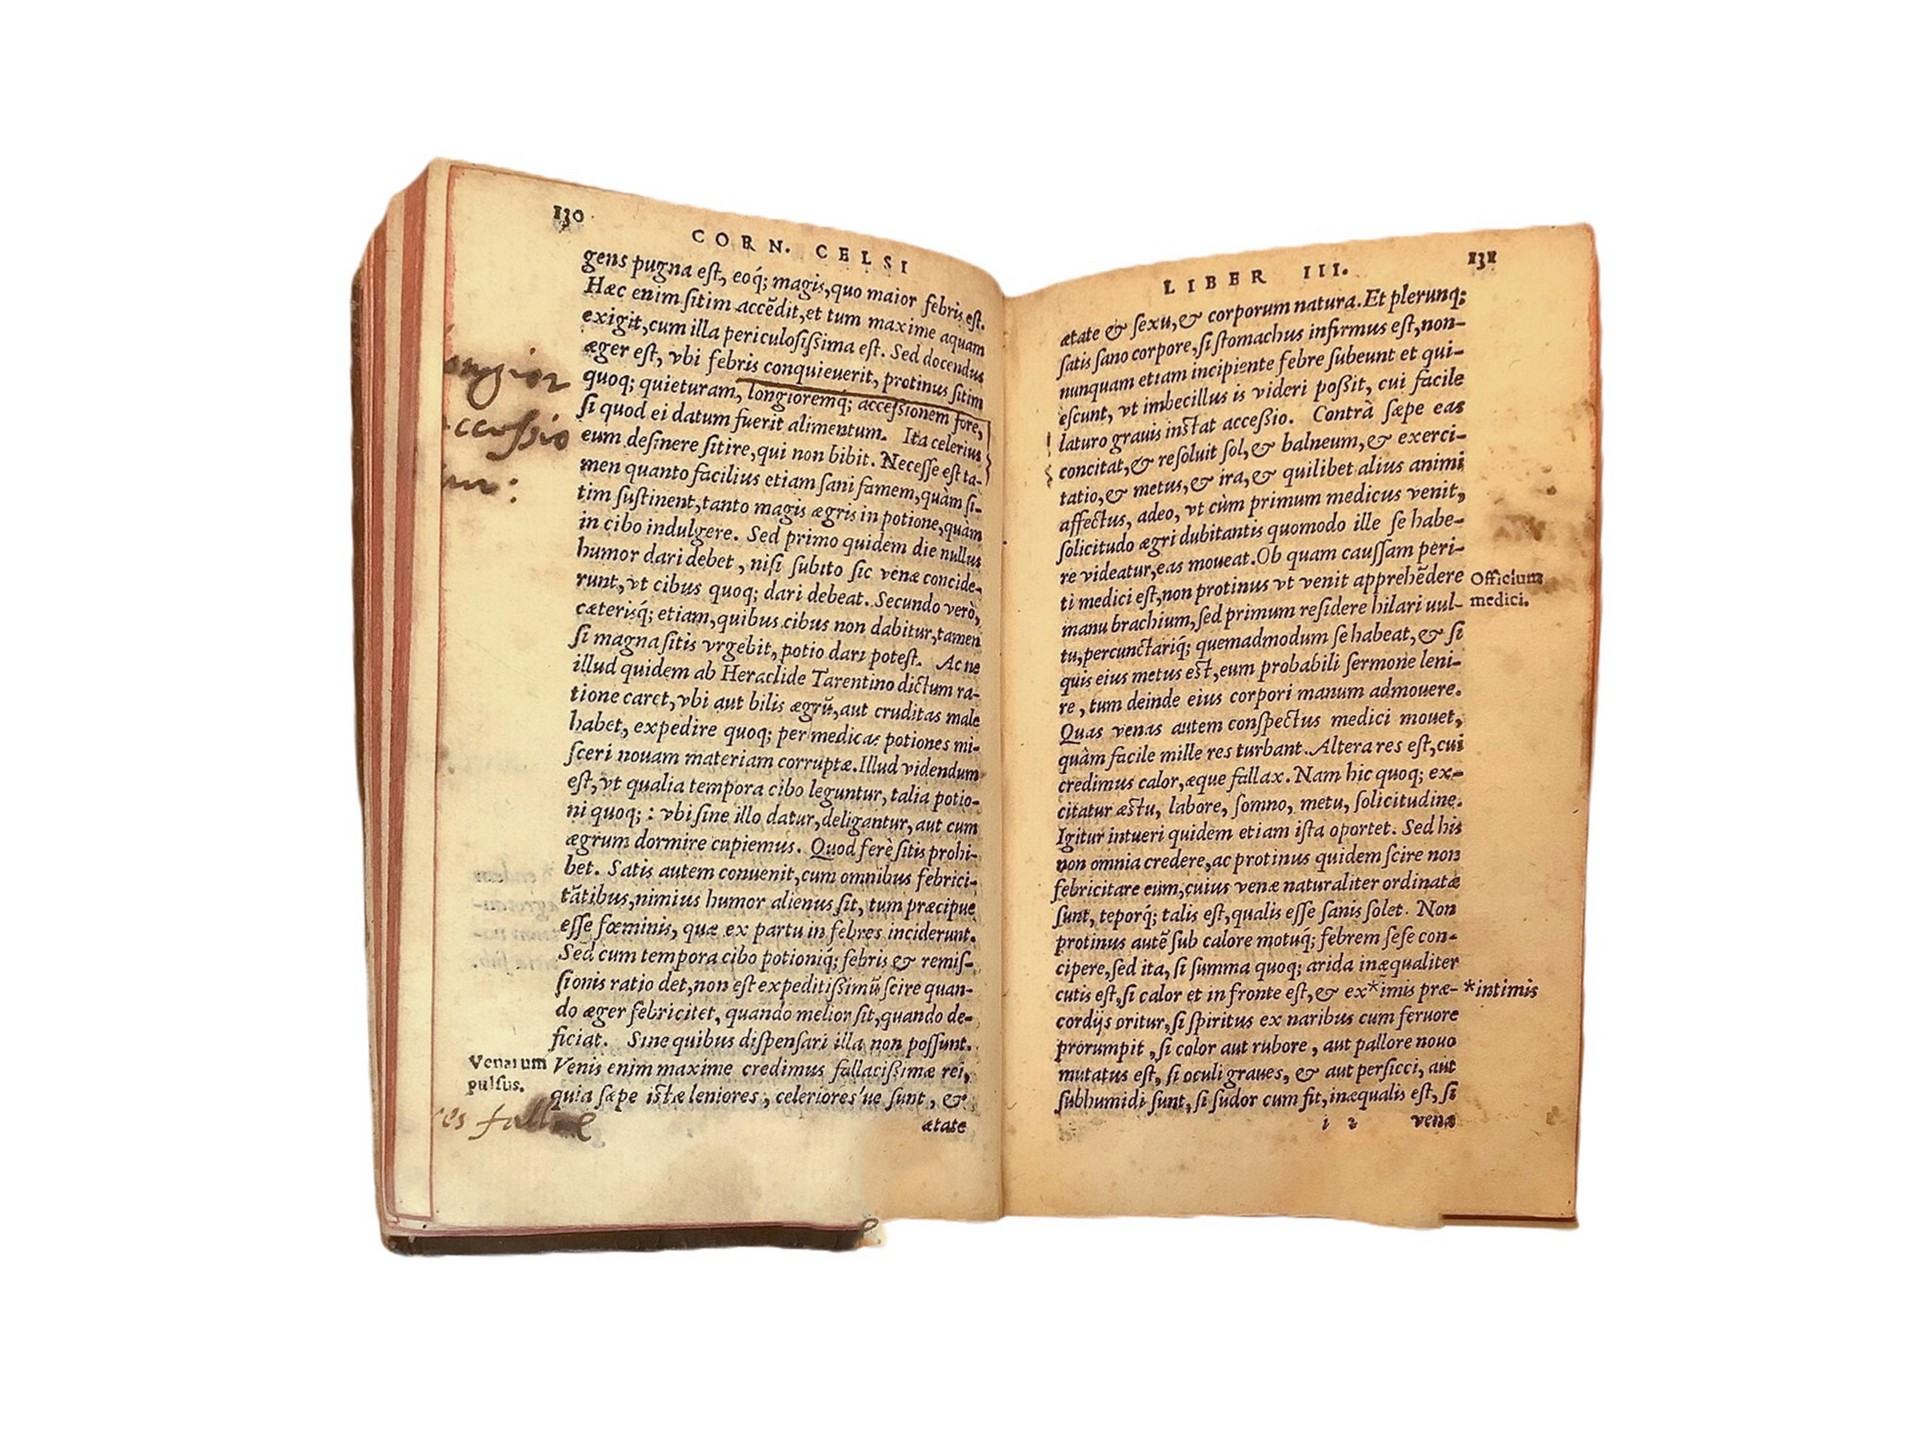 130
CORN. CELSI
gens pugna eſt, eoq́; magis, quo maior febris eſt.
Hæc enim ſitim accẽdit, et tum maxime aquam
exigit, cum illa periculoſiſsima eſt. Sed docendus
æger eſt, vbi febris conquieuerit, protinus ſitim
quoq; quieturam, longioremq́; acceſsionem fore,
ſi quod ei datum fuerit alimentum. Ita celerius
eum deſinere ſitire, qui non bibit. Neceſſe eſt ta-
men quanto facilius etiam ſani famem, quàm ſi-
tim ſuſtinent, tanto magis ægris in potione, quàm
in cibo indulgere. Sed primo quidem die nullus
humor dari debet, niſi ſubito ſic venæ concide-
runt, vt cibus quoq; dari debeat. Secundo verò,
cæterisq́; etiam, quibus cibus non dabitur, tamen
ſi magna ſitis vrgebit, potio dari poteſt. Ac ne
illud quidem ab Heraclide Tarentino dictum ra-
tione caret, vbi aut bilis ægrũ, aut cruditas male
habet, expedire quoq; per medicas potiones mi-
ſceri nouam materiam corruptæ. Illud videndum
eſt, vt qualia tempora cibo leguntur, talia potio-
ni quoq; : vbi ſine illo datur, deligantur, aut cum
ægrum dormire cupiemus. Quod ferè ſitis prohi-
bet. Satis autem conuenit, cum omnibus febrici-
tãtibus, nimius humor alienus ſit, tum præcipue
eſſe fœminis, quæ ex partu in febres inciderunt.
Sed cum tempora cibo potioniq́; febris & remiſ-
ſionis ratio det, non eſt expeditiſsimũ ſcire quan-
do æger febricitet, quando melior ſit, quando de-
ficiat. Sine quibus diſpenſari illa non poſſunt.
Venis enim maxime credimus fallaciſsimæ rei,
quia ſæpe iſtæ leniores, celeriores'ue ſunt, &
ætate
ongior
ccessio
Venarum
pulſus.
res fall
LIBER III.
131
ætate & ſexu, & corporum natura. Et plerunq;
ſatis ſano corpore, ſi ſtomachus infirmus eſt, non-
nunquam etiam incipiente febre ſubeunt et qui-
eſcunt, vt imbecillus is videri poßit, cui facile
laturo grauis inſtat acceßio. Contrà ſæpe eas
concitat, & reſoluit ſol, & balneum, & exerci-
tatio, & metus, & ira, & quilibet alius animi
affectus, adeo, vt cùm primum medicus venit,
ſolicitudo ægri dubitantis quomodo ille ſe habe-
re videatur, eas moueat. Ob quam cauſſam peri-
ti medici eſt, non protinus vt venit apprehẽdere
manu brachium, ſed primum reſidere hilari uul-
tu, percunctariq́; quemadmodum ſe habeat, & ſi
quis eius metus eſt, eum probabili ſermone leni-
re, tum deinde eius corpori manum admouere.
Quas venas autem conſpectus medici mouet,
quàm facile mille res turbant. Altera res eſt, cui
credimus calor, æque fallax. Nam hic quoq; ex-
citatur æſtu, labore, ſomno, metu, ſolicitudine.
Igitur intueri quidem etiam iſta oportet. Sed his
non omnia credere, ac protinus quidem ſcire non
febricitare eum, cuius venæ naturaliter ordinatæ
ſunt, teporq́; talis eſt, qualis eſſe ſanis ſolet. Non
protinus autẽ ſub calore motuq́; febrem ſeſe con-
cipere, ſed ita, ſi ſumma quoq; arida inæqualiter
cutis eſt, ſi calor et in fronte eſt, & ex*imis præ-
cordijs oritur, ſi ſpiritus ex naribus cum feruore
prorumpit, ſi color aut rubore, aut pallore nouo
mutatus eſt, ſi oculi graues, & aut perſicci, aut
ſubhumidi ſunt, ſi ſudor cum fit, inæqualis eſt, ſi
i 2 venæ
Officium
medici.
*intimis